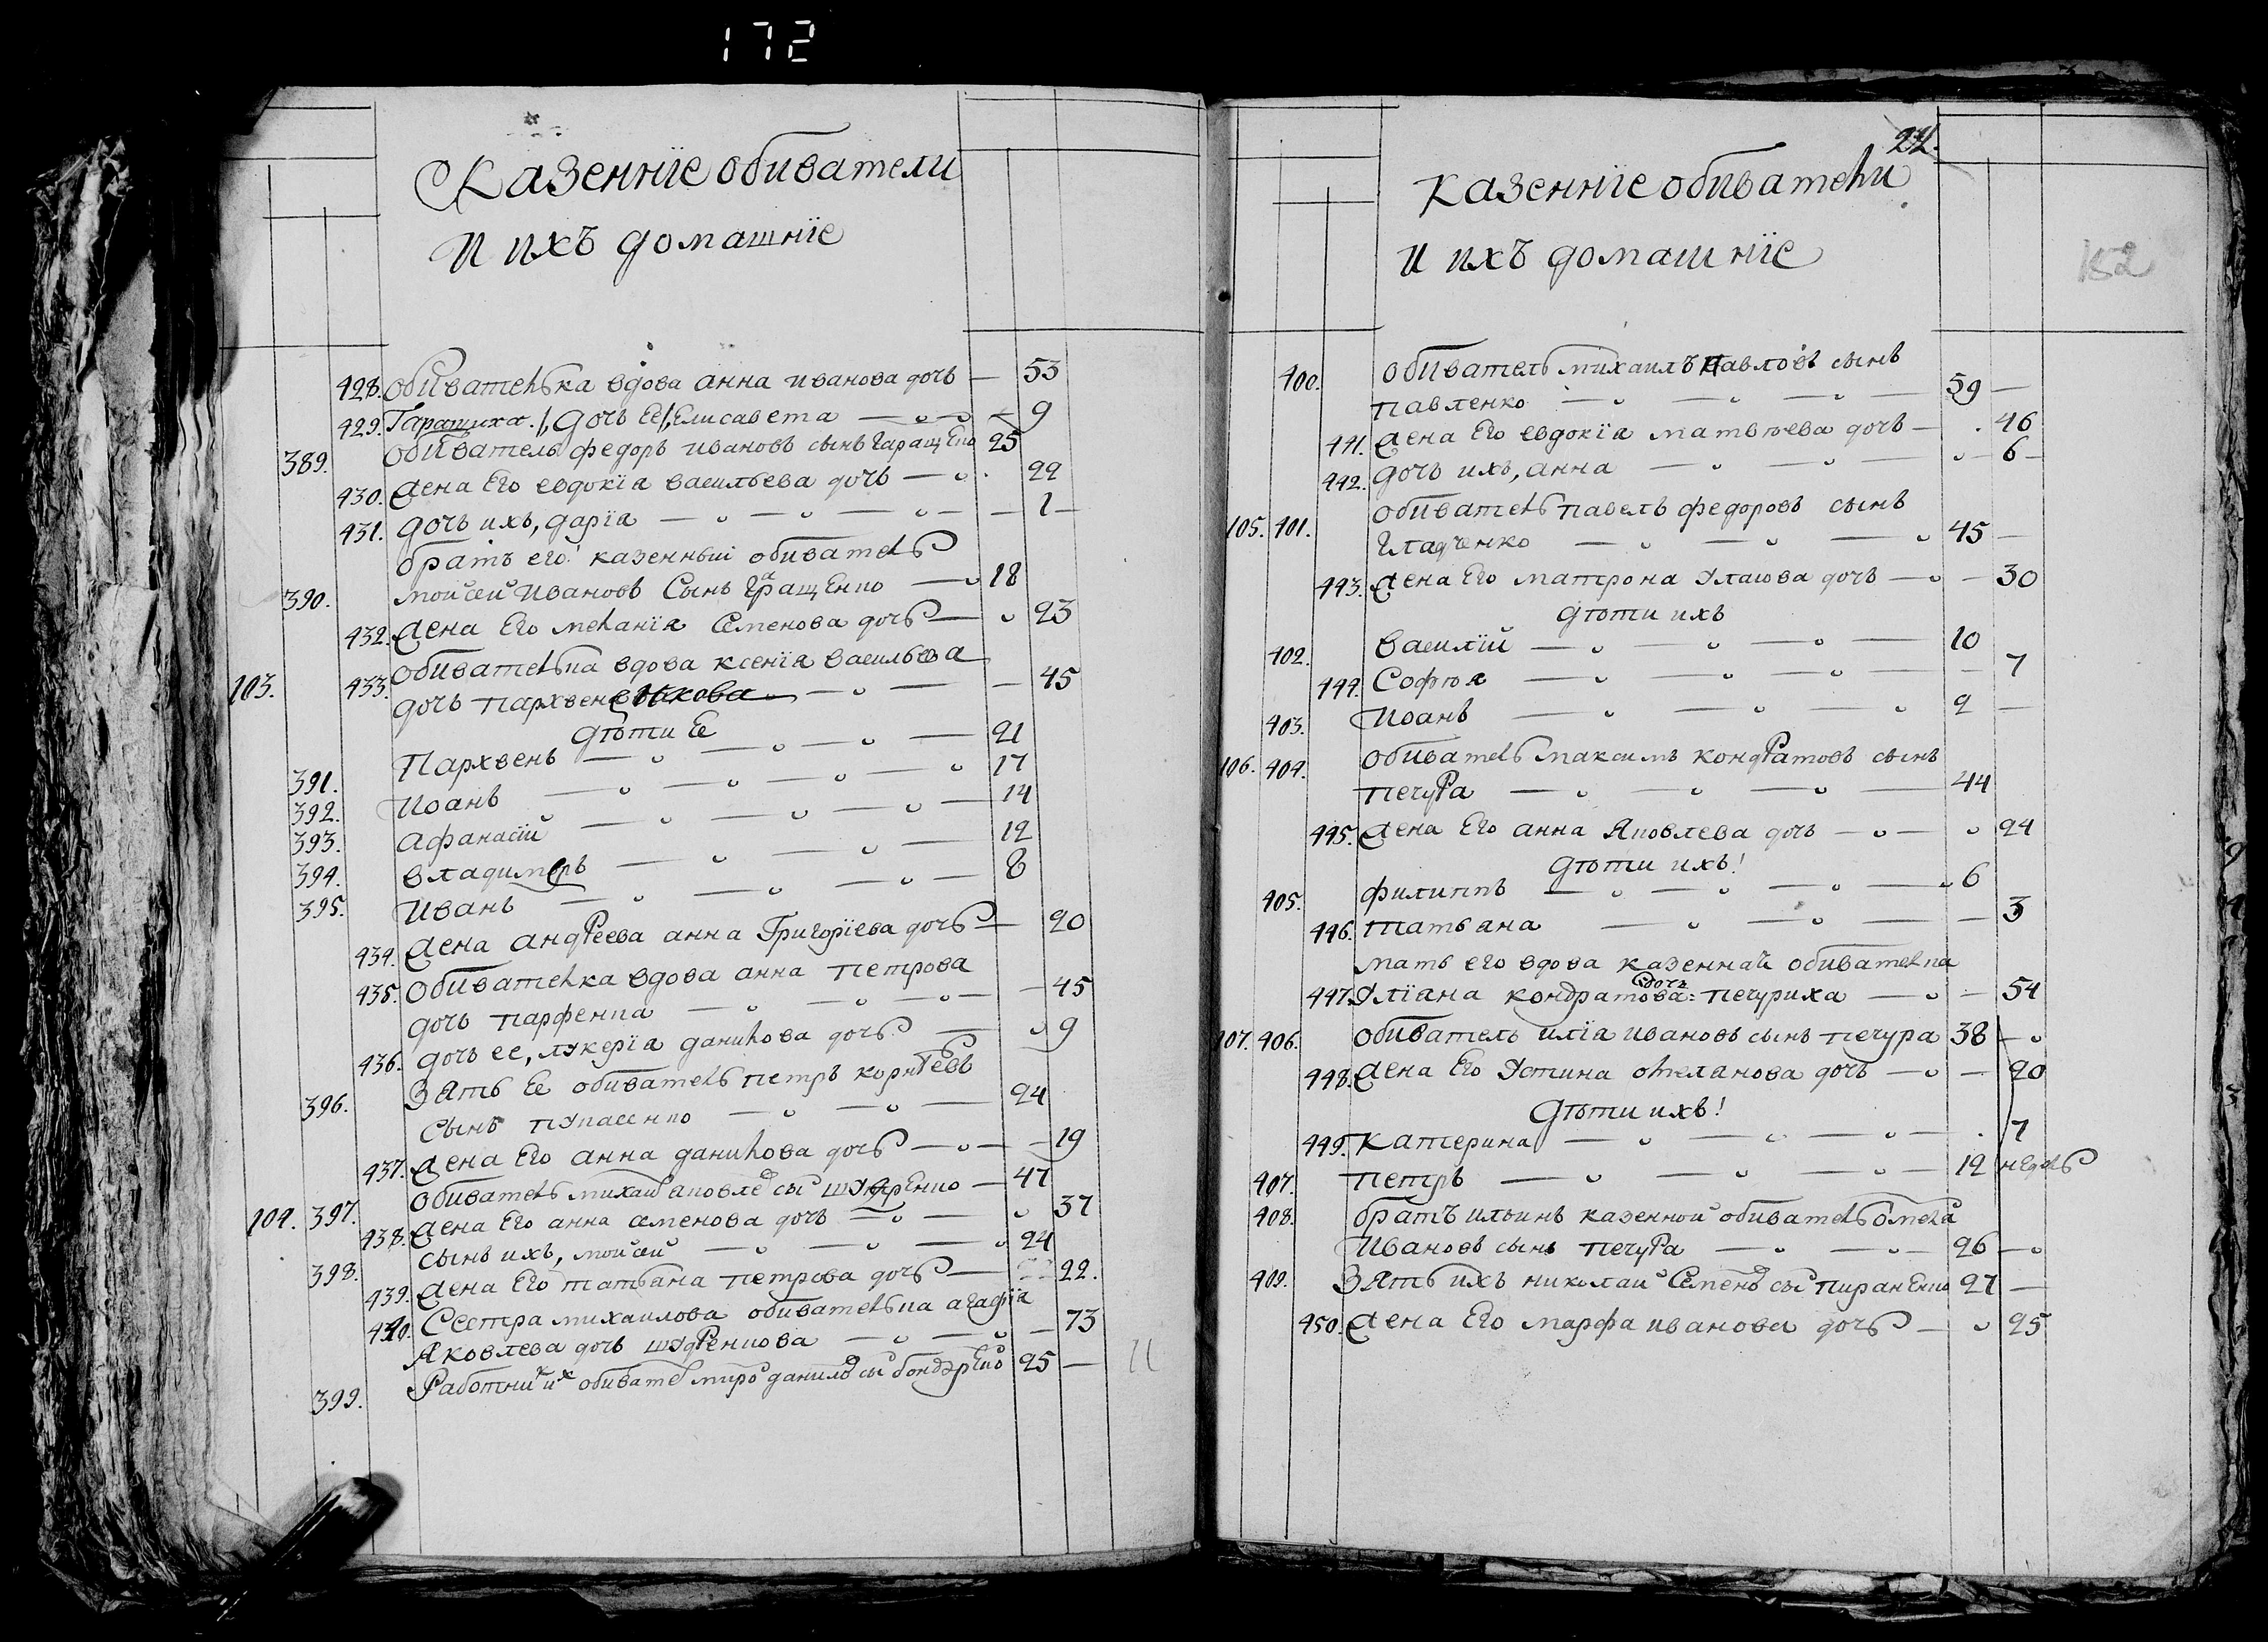 172
Казенніе обиватели
И ихъ домашніе
428. обивателька вдова анна иванова дочь — 53
429. Гаращиха ./. Дочь Ее /. Елисавета — 9
389. обиватель федоръ ивановъ сынъ Гаращенко 25
430. жена Его евдокіа васильева дочь — 22
431. дочь ихъ, дарїа — 1 —
братъ его! казенный обиватель
390. моисей Ивановъ Сынъ Гаращенко — 18
432. жена Его меланїа Семенова дочь — 23
обивателька вдова ксенїа васильева
103. 433. дочь пархвен — 45
дѣти Ее
391. Пархвенъ — 21
392. Иоанъ — 17
393. афанасїй — 14
394. владимеръ — 12
395. Иванъ — 8
434. жена андреева анна Григорїева дочь — 20
435. обивателка вдова анна петрова
дочь парфенка — 45
436. дочь ее, лукерїа данилова дочь — 9
Зять Ее обиватель петръ корнѣевъ
396. сынъ пупасенко — 24
437. жена Его анна данилова дочь — 19
104. 397. обиватель михаи яковле сы — 47
438. жена Его анна семенова дочь — 37
398. сынъ ихъ, моисей — 24
439. жена Его татьана петрова дочь — 22.
440. Сестра михаилова обивателька агафїа
Яковлева дочь шудренкова — 73
399. Работник их обивате миро данило сы бондаренко 25 —
22.
казенніе обиватели
и ихъ домашніе
152
400. обиватель михаилъ Павловъ сынъ
павленко — 59 —
441. жена Его евдокїа матвѣева дочь — 46
442. дочь ихъ, анна — 6 —
обиватель павелъ федоровъ сынъ
105. 401. Гладченко — 45 —
443. жена Его матрона Улашова дочь — 30
дѣти ихъ
402. Василїй — 10
444. Софѣя — 7
403. Иоанъ — 2 —
106. 404. обиватель максимъ кондратовъ сынъ
печура — 44
445. жена Его анна Яковлева дочь — 24
дѣти ихъ!
405. филиппъ — 6
446. татьана — 3
мать его вдова казеннай обивателка
447. Улїана кондратова дочь: печуриха — 54
107. 406. обиватель илїа ивановъ сынъ печура 38 —
448. жена Его Устина дочь — 20
Дѣти ихъ!
449. катерина — 7
407. петръ — 12 недель
408. братъ ильинъ казенной обиватель омела
Ивановъ сынъ печура — 26 —
409. Зять ихъ николаи Семено сы пиранЕнко 27 —
450. жена Его марфа иванова дочь — 25